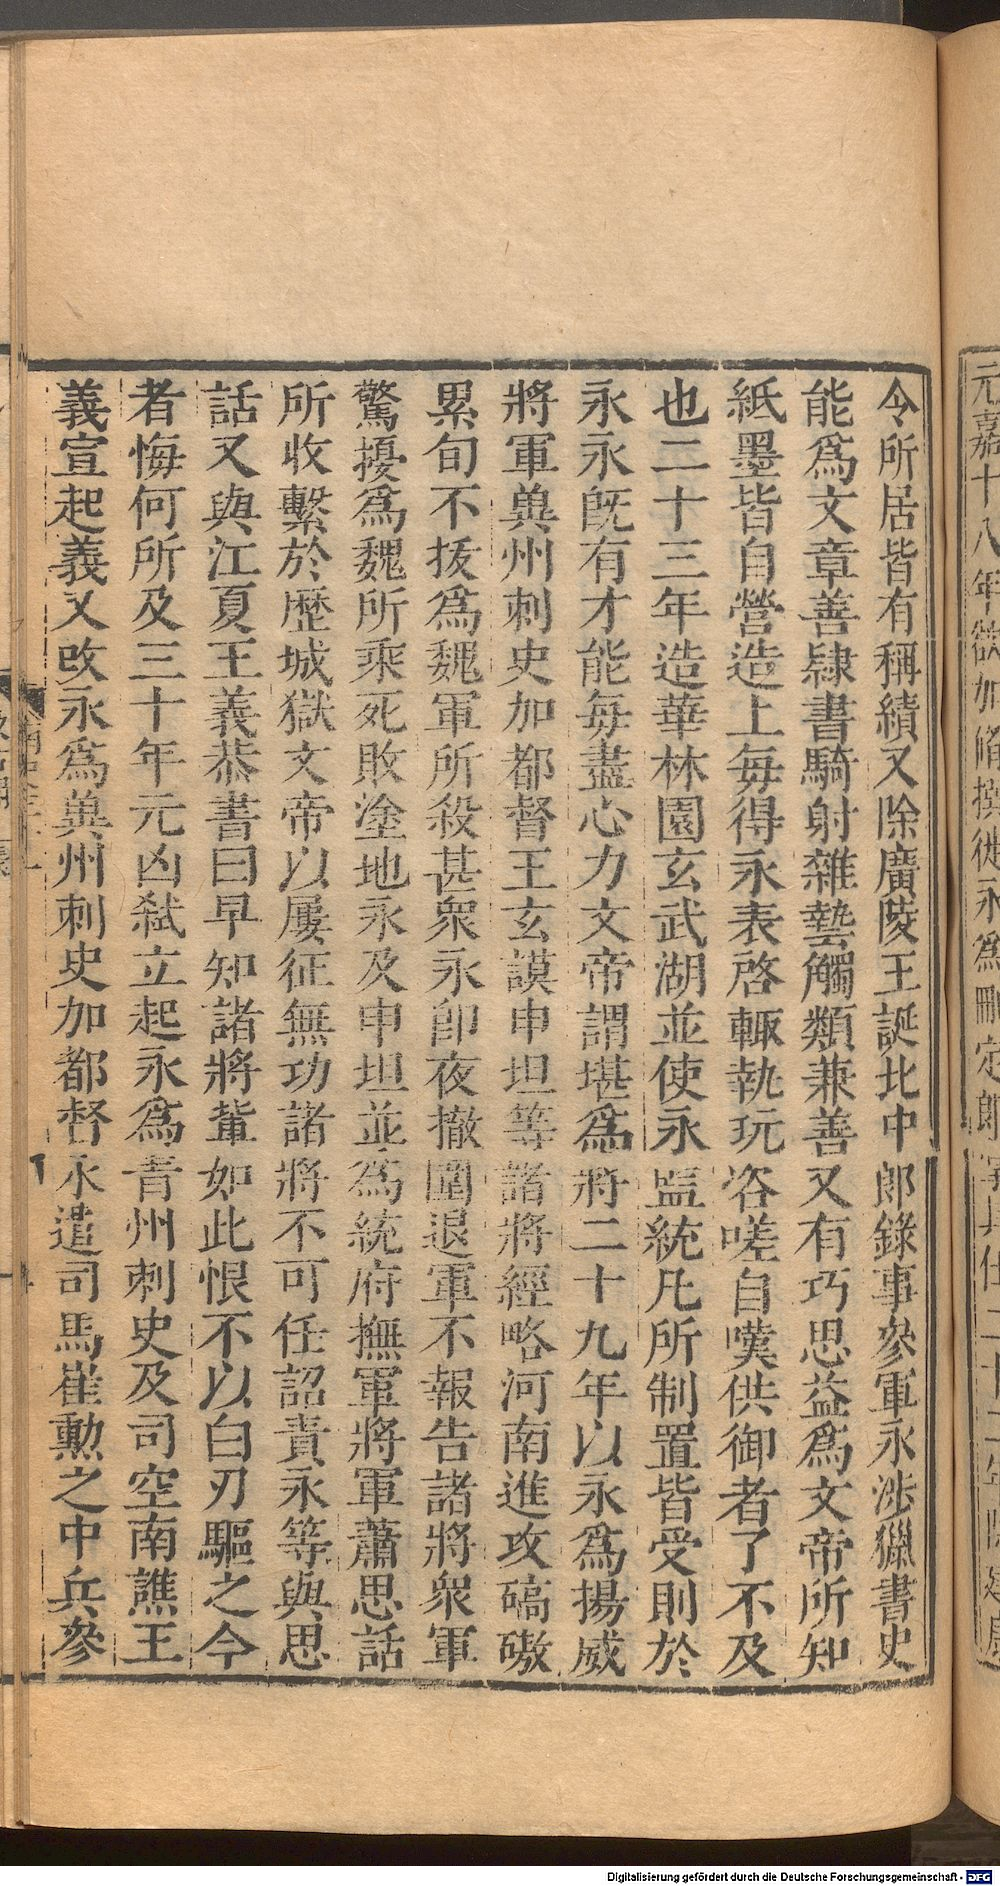 令所居皆有稱績又除廣陵王誕北中郎錄事參軍永涉獵書史
能爲文章善隷書騎射雜藝觸類兼善又有巧思益爲文帝所知
紙墨皆自營造上每得永表啓輙執玩咨嗟自嘆供御者了不及
也二十三年造華林園玄武湖並使永監統凡所制置皆受則於
永永旣有才能每盡心力文帝謂堪爲將二十九年以永爲揚威
將軍兾州刺史加都督王玄謨申坦等諸將經略河南進攻碻磝
累旬不拔爲魏軍所殺甚衆永卽夜撤圍退軍不報告諸將衆軍
驚擾爲魏所乘死敗塗地永及申坦並爲統府撫軍將軍蕭思話
所收繫於歷城獄文帝以屢征無功諸將不可任詔責永等與思
話又與江夏王義恭書曰早知諸將輩如此恨不以白刃驅之今
者悔何所及三十年元凶弑立起永爲青州刺史及司空南譙王
義宣起義又改永爲兾州刺史加都督永遣司馬崔勲之中兵參
元嘉十八年欲加脩撰徙永爲刪定郎
Digitalisierung gefördert durch die Deutsche Forschungsgemeinschaft - DFG